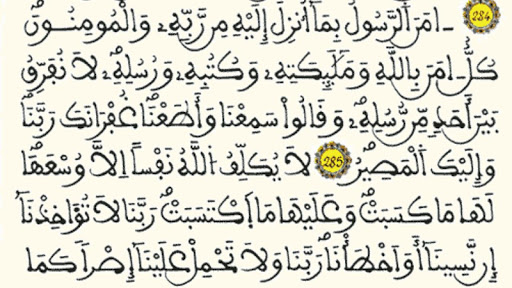 284 ءَامَنَ اَلرَّسُولُ بِمَآ أُنزِلَ إِلَيْهِ مِن رَّبِّهِۦ وَالْمُومِنُونَ
كُلٌّ ـامَنَ بِاللَّهِ وَمَلَٰٓئِكَتِهِۦ وَكُتُبِهِۦ وَرُسُلِهِۦ لَا نُفَرِّقُ
بَيْنَ أَحَدٍ مِّن رُّسُلِهِۦ وَقَالُواْ سَمِعْنَا وَأَطَعْنَا غُفْرَانَكَ رَبَّنَا
وَإِلَيْكَ اَلْمَصِيرُ 285 لَا يُكَلِّفُ اُللَّهُ نَفْساً اِلَّا وُسْعَهَا
لَهَا مَا كَسَبَتْ وَعَلَيْهَا مَا اَكْتَسَبَتْ رَبَّنَا لَا تُؤَاخِذْنَا
إِن نَّسِينَا أَوَ اخْطَأْنَا رَبَّنَا وَلَا تَحْمِلْ عَلَيْنَا إِصْراً كَمَا